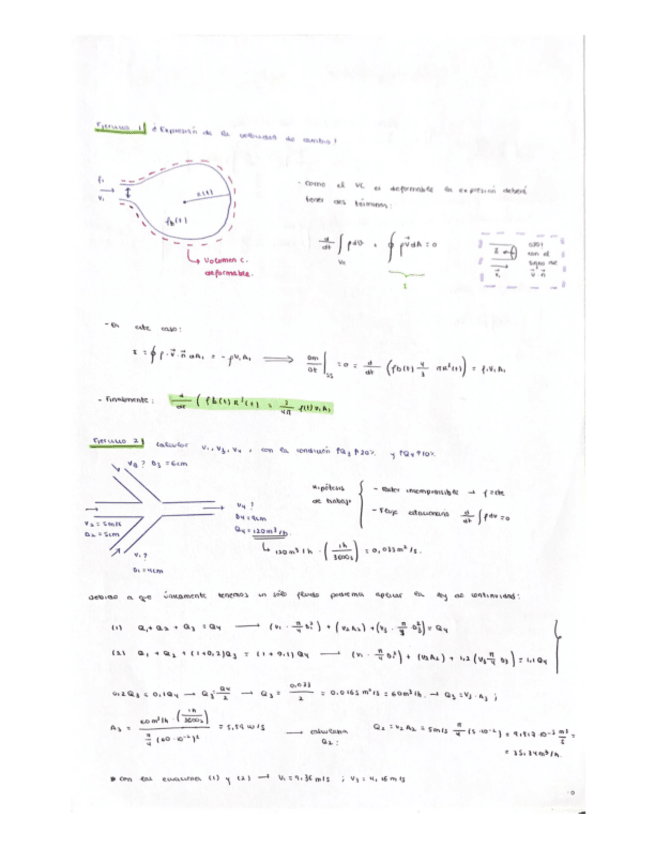 Ejercicio 1 ¿ Expresión de la velocidad de cambio?
- Como el VC es deformable la expresión deberá
tener dos términos:
ρ₁
V₁
R(t)
ρb(t)
Volumen c.
deformable.
d/dt ∫ ρ dV + ∮ ρ v⃗ dA = 0
VC
I
- En este caso:
I = ∮ ρ · v⃗ · n⃗ dA₁ = - ρV₁A₁ ⟹ dm/dt |ss = 0 = d/dt (ρb(t) 4/3 πR³(t)) = ρ₁V₁A₁
- Finalmente: d/dt (ρb(t) R³(t) = 3/4π ρ(t) V₁A₁
Ejercicio 2 Calcular V₁, V₃, V₄, con la condición ↑Q₃ ↑20% y ↑Q₄↑10%
V₃? D₃ = 6cm
V₂ = 5m/s
D₂ = 5cm
V₄?
D₄ = 9cm
Q₄ = 120m³/h
V₁?
D₁ = 4cm
Hipótesis
de trabajo
- Fluido estacionario d/dt ∫ρdV = 0
120 m³/h · (1h/3600s) = 0,033 m³/s.
Debido a que únicamente tenemos un solo fluido podremos aplicar la ley de continuidad:
(1) Q₁ + Q₂ + Q₃ = Q₄ ⟶ (V₁ · π/4 D₁²) + (V₂A₂) + (V₃ · π/4 D₃²) = Q₄
(2) Q₁ + Q₂ + (1+0,2)Q₃ = (1+0,1) Q₄ ⟶ (V₁ · π/4 D₁²) + (V₂A₂) + 1,2 (V₃ π/4 D₃) = 1,1 Q₄
0,2Q₃ = 0,1Q₄ → Q₃ = Q₄/2 → Q₃ = 0,033/2 = 0,0163 m³/s = 60m³/h. → Q₃ = V₃ · A₃ ;
A₃ = 60 m³/h · (1h/3600s) / π/4 (60 · 10⁻²)² = 5,89 m/s ⟶ calculamos Q₂ : Q₂ = V₂A₂ = 5m/s π/4 (5·10⁻²) = 9,817 · 10⁻³ m³/s =
= 35,34m³/h.
Con las ecuaciones (1) y (2) → V₁ = 9,36 m/s ; V₃ = 4,16 m/s